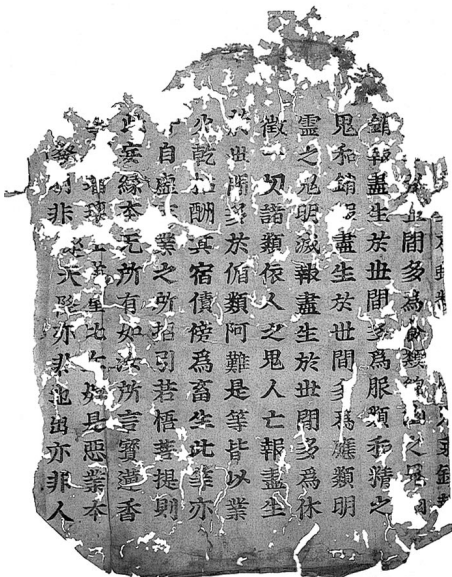 世間多為食類綿幽之鬼
銷報盡生於世間多為服類和精之
鬼和銷報盡生於世間多為應類明
靈之鬼明滅報盡生於世間多為休
徵一切諸類依人之鬼人亡報盡生
於世間多於循類阿難是等皆以業
火乾枯酬其宿債傍為畜生此等亦
自虛妄業之所招引若悟菩提則
此妄緣本无所有如汝所言寶蓮香
琉璃王善星比丘如是惡業本
發明非從天降亦非地出亦非人